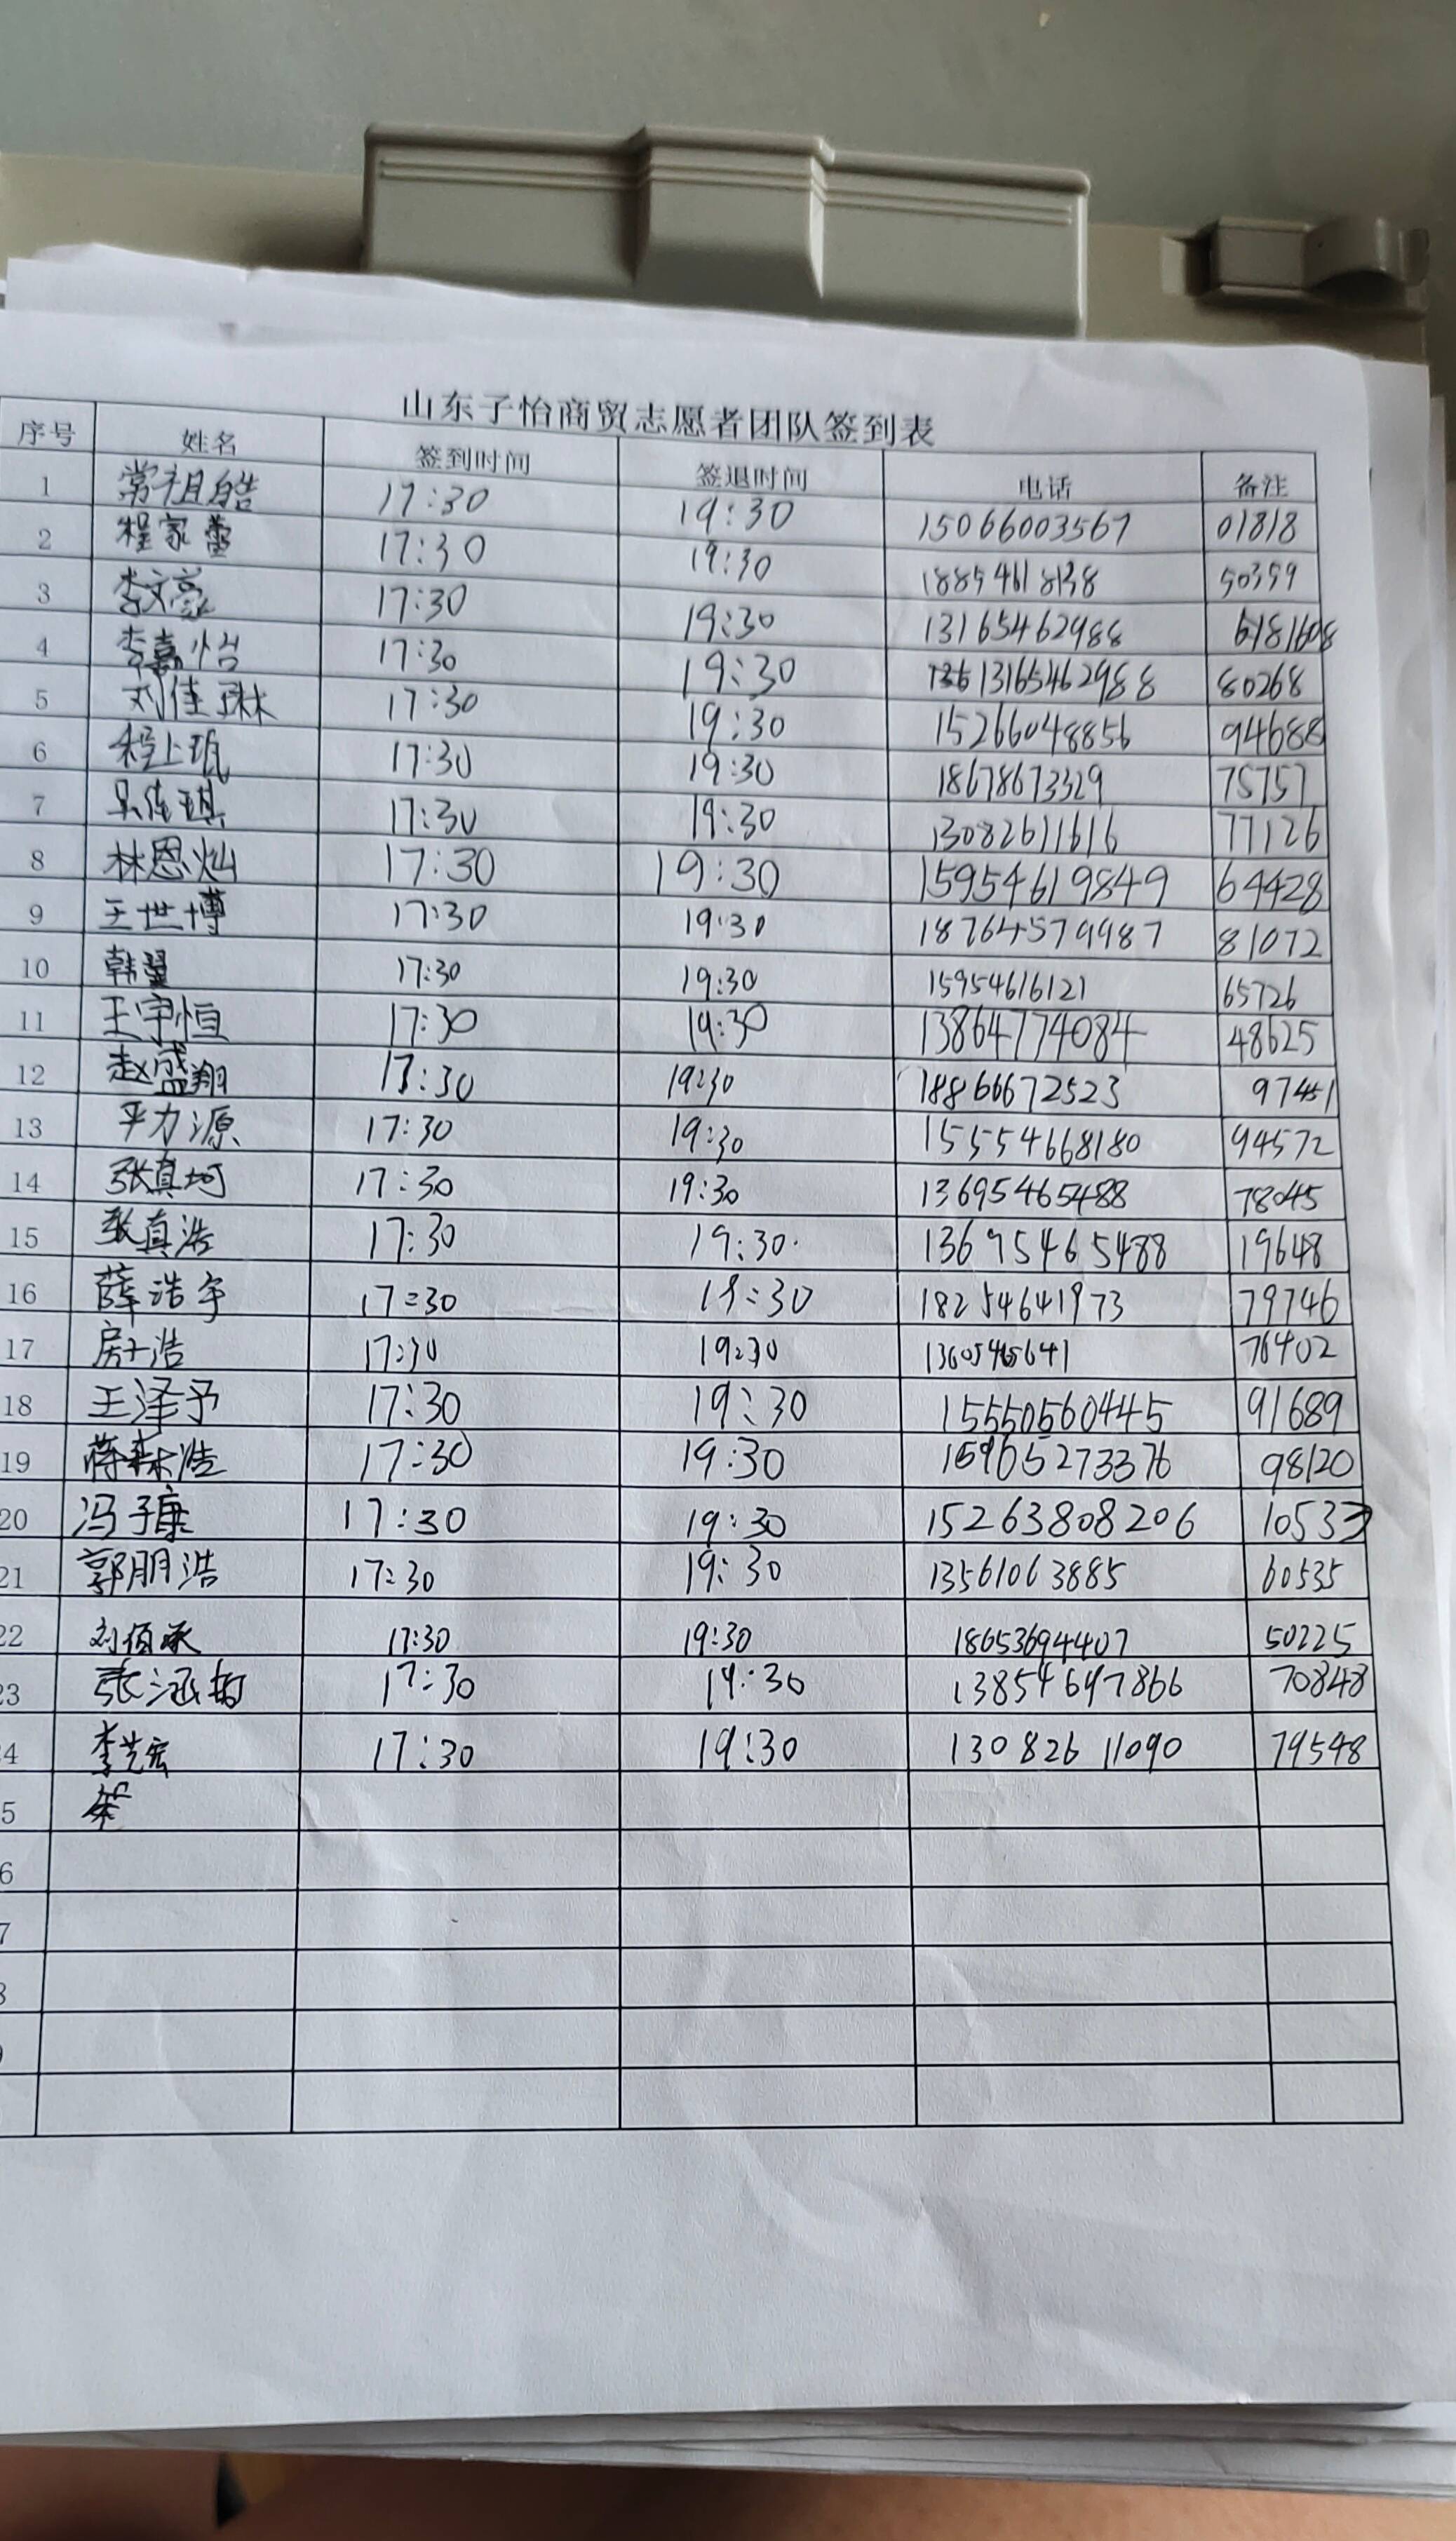 山东子怡商贸志愿者团队签到表
序号 姓名 签到时间 签退时间 电话 备注
1 常祖皓 17:30 19:30 15066003567 01818
2 程家蕾 17:30 19:30 50359
3 李文豪 17:30 19:30 13165462988
4 李嘉怡 17:30 19:30 13165462988 80268
5 刘佳琳 17:30 19:30 15266048856 94688
6 程上珉 17:30 19:30 18678673329 75757
7 吴佳琪 17:30 19:30 13082611616 77126
8 林恩灿 17:30 19:30 15954619849 64428
9 王世博 17:30 19:30 18764579987 81072
10 韩翼 17:30 19:30 15954616121 65726
11 王宇恒 17:30 19:30 13864774084 48625
12 赵盛翔 17:30 19:30 18866672523 97451
13 平力源 17:30 19:30 15554668180 94572
14 张真珂 17:30 19:30 13695465488 78045
15 张真浩 17:30 19:30 13695465488 19648
16 薛浩宇 17:30 19:30 18254641973 79746
17 房士浩 17:30 19:30 76402
18 王泽予 17:30 19:30 15550560445 91689
19 蒋森浩 17:30 19:30 15965273376 98120
20 冯子康 17:30 19:30 15263808206 10533
21 郭朋浩 17:30 19:30 13561063885 60535
22 刘佰承 17:30 19:30 18653694407 50225
23 张涵哲 17:30 19:30 13854697866 70848
4 李艺宏 17:30 19:30 13082611090 79548
5
6
7
8
9